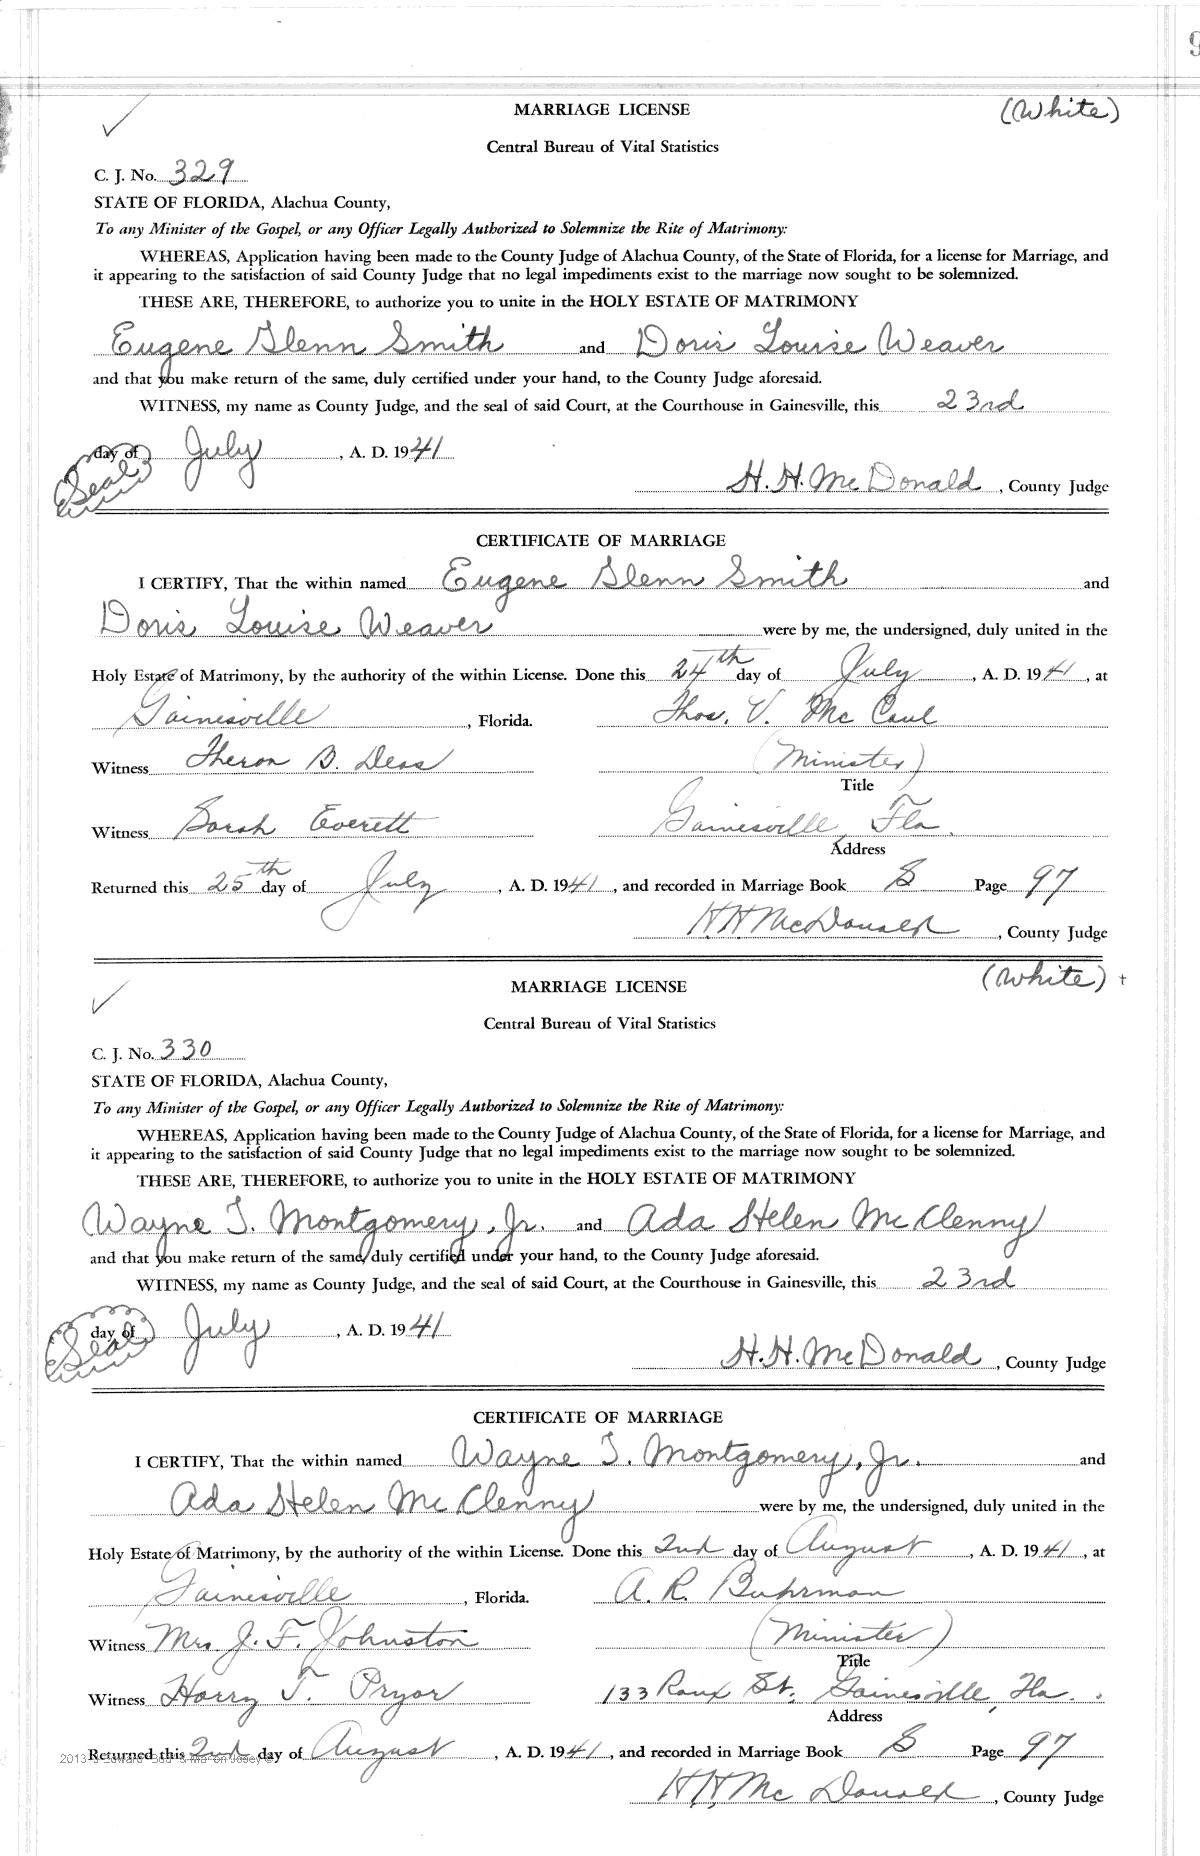 9
MARRIAGE LICENSE (White)
Central Bureau of Vital Statistics
C. J. No. 329
STATE OF FLORIDA, Alachua County,
To any Minister of the Gospel, or any Officer Legally Authorized to Solemnize the Rite of Matrimony:
WHEREAS, Application having been made to the County Judge of Alachua County, of the State of Florida, for a license for Marriage, and
it appearing to the satisfaction of said County Judge that no legal impediments exist to the marriage now sought to be solemnized.
THESE ARE, THEREFORE, to authorize you to unite in the HOLY ESTATE OF MATRIMONY
Eugene Glenn Smith and Doris Louise Weaver
and that you make return of the same, duly certified under your hand, to the County Judge aforesaid.
WITNESS, my name as County Judge, and the seal of said Court, at the Courthouse in Gainesville, this 23rd
day of July, A. D. 1941
(Seal) H. H. McDonald, County Judge
CERTIFICATE OF MARRIAGE
I CERTIFY, That the within named Eugene Glenn Smith and
Doris Louise Weaver were by me, the undersigned, duly united in the
Holy Estate of Matrimony, by the authority of the within License. Done this 24th day of July, A. D. 1941, at
Gainesville, Florida. Thos. V. McCaul
Witness Theron B. Deas (Minister)
Title
Witness Sarah Everett Gainesville, Fla.
Address
Returned this 25th day of July, A. D. 1941, and recorded in Marriage Book S Page 97
H H McDonald, County Judge
MARRIAGE LICENSE (White) +
Central Bureau of Vital Statistics
C. J. No. 330
STATE OF FLORIDA, Alachua County,
To any Minister of the Gospel, or any Officer Legally Authorized to Solemnize the Rite of Matrimony:
WHEREAS, Application having been made to the County Judge of Alachua County, of the State of Florida, for a license for Marriage, and
it appearing to the satisfaction of said County Judge that no legal impediments exist to the marriage now sought to be solemnized.
THESE ARE, THEREFORE, to authorize you to unite in the HOLY ESTATE OF MATRIMONY
Wayne T. Montgomery, Jr. and Ada Helen McClenny
and that you make return of the same, duly certified under your hand, to the County Judge aforesaid.
WITNESS, my name as County Judge, and the seal of said Court, at the Courthouse in Gainesville, this 23rd
day of July, A. D. 1941
(Seal) H. H. McDonald, County Judge
CERTIFICATE OF MARRIAGE
I CERTIFY, That the within named Wayne T. Montgomery, Jr. and
Ada Helen McClenny were by me, the undersigned, duly united in the
Holy Estate of Matrimony, by the authority of the within License. Done this 2nd day of August, A. D. 1941, at
Gainesville, Florida. A. R. Buhrman
Witness Mrs J. F. Johnston (Minister)
Title
Witness Harry T. Pryor 133 Roux St, Gainesville, Fla.
Address
Returned this 2nd day of August, A. D. 1941, and recorded in Marriage Book S Page 97
H. H. McDonald, County Judge